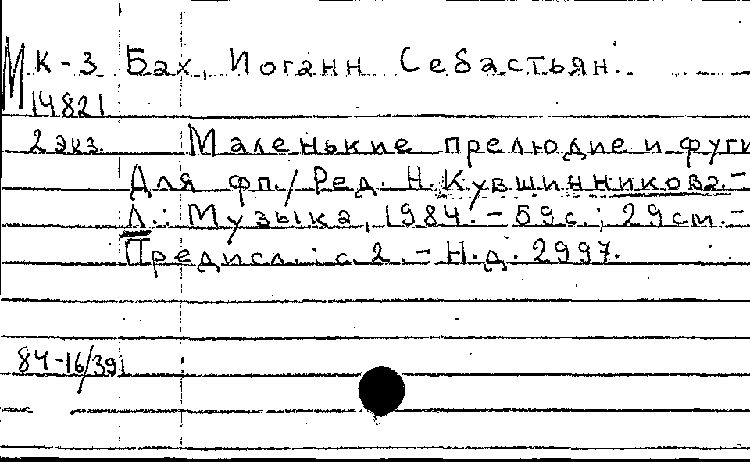 МК-3 Бах, Иоганн Себастьян.
14821
2 экз. Маленькие прелюдие и фуги
Для фп./ Ред. Н. Кувшинникова.-
Л.: Музыка, 1984. - 59с.; 29см.-
Предисл.: с. 2. - Н.д. 2997.
84-16/391